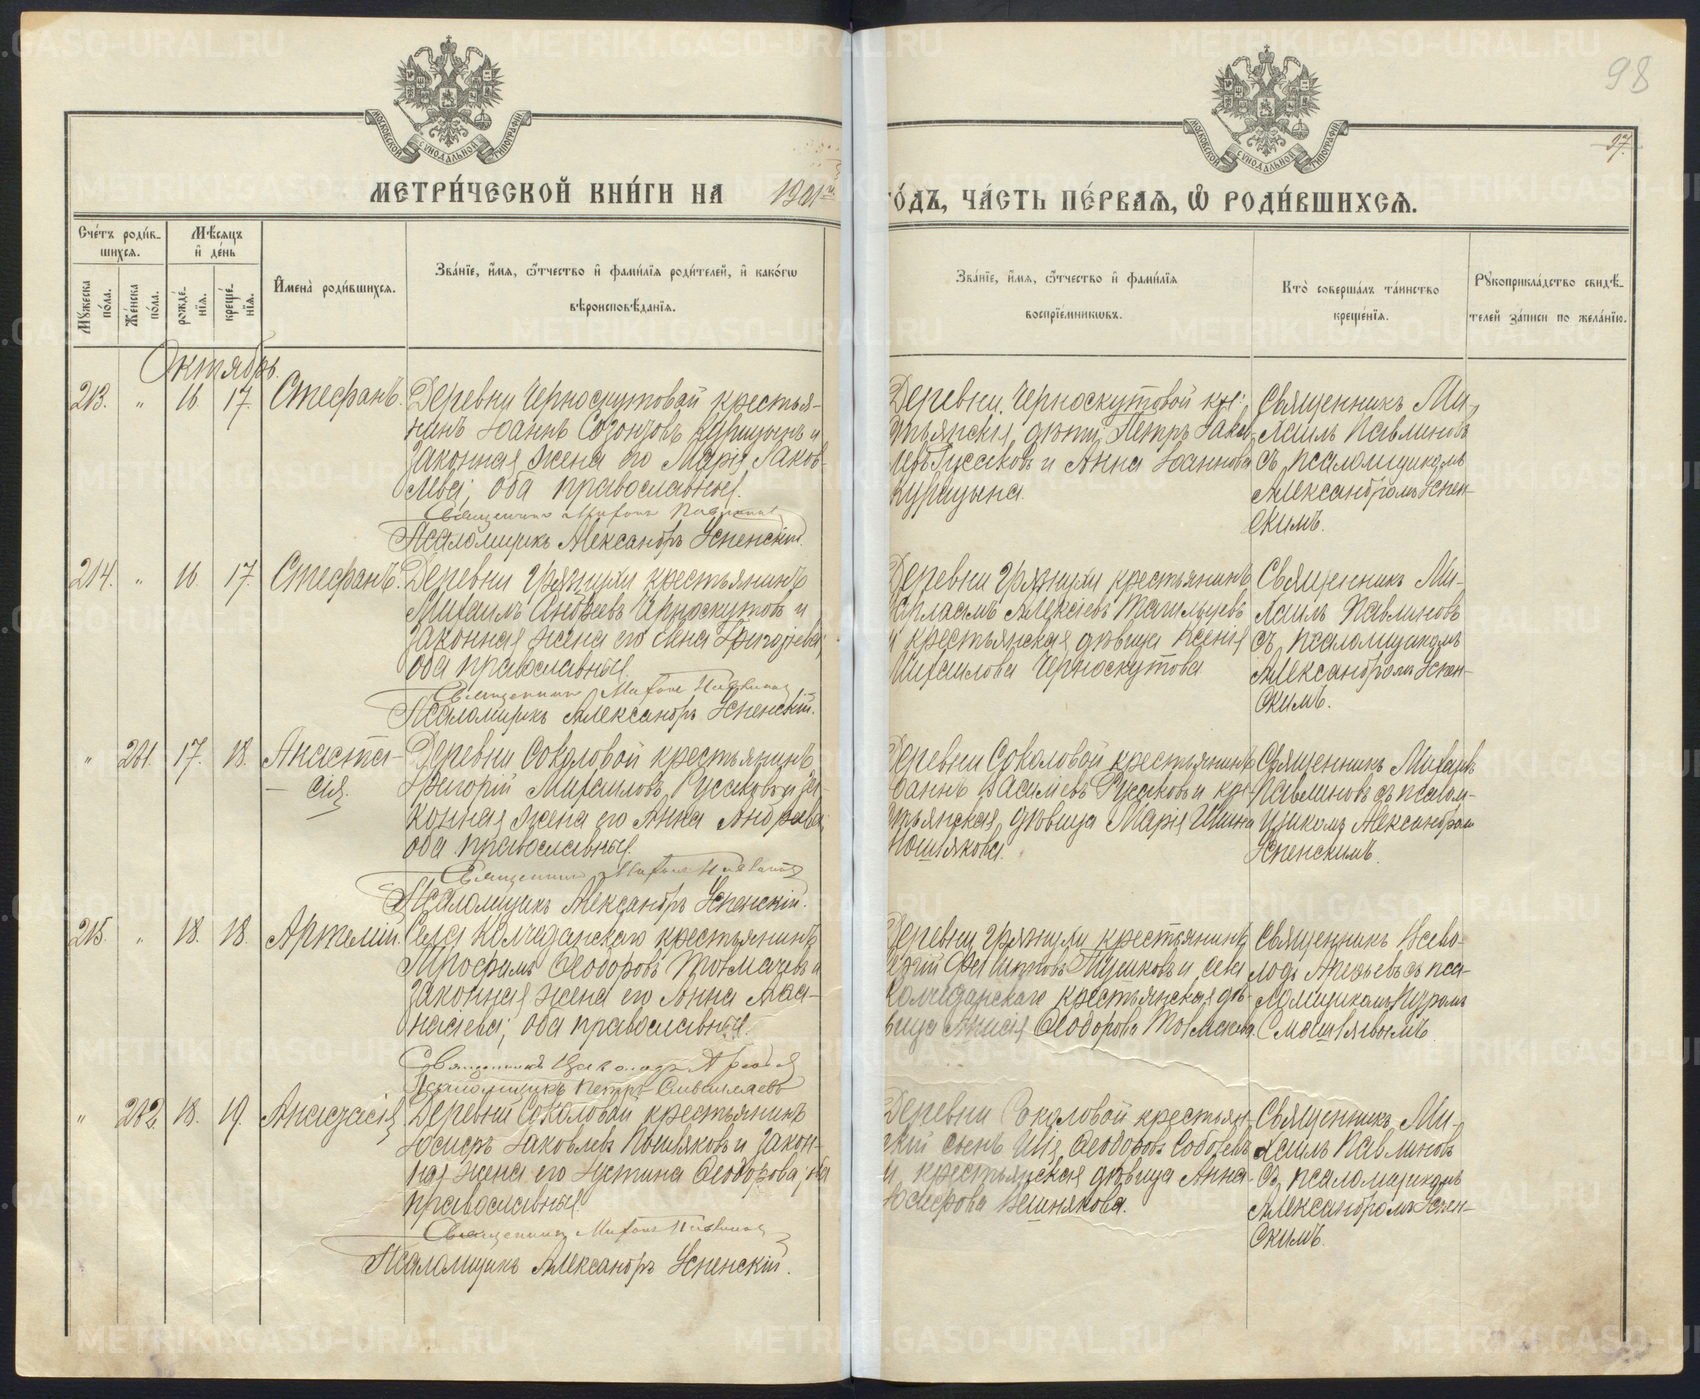 98
97.
МЕТРИ́ЧЕСКОЙ КНИ́ГИ НА 1901й
ГО́ДЪ, ЧА́СТЬ ПЕ́РВАѦ, Ѽ РОДИ́ВШИХСѦ.
МОСКОВСКОЙ СѴНОДАЛЬНОЙ ТИПОГРАФІИ
МОСКОВСКОЙ СѴНОДАЛЬНОЙ ТИПОГРАФІИ
Сче́тъ роди́в-
шихсѧ.
Мѣ́сѧцъ
и҆ де́нь
Мꙋ́жеска по́ла.
Же́нска по́ла.
рожде́-
нїѧ.
креще́-
нїѧ.
И҆мена̀ роди́вшихсѧ.
Зва́нїе, и҆́мѧ, ѻ҆́тчество и҆ фами́лїѧ роди́телей, и҆ како́гѡ
вѣроисповѣ́данїѧ.
Зва́нїе, и҆́мѧ, ѻ҆́тчество и҆ фами́лїѧ
воспрїе́мникѡвъ.
Кто̀ соверша́лъ та́инство
креще́нїѧ.
Рꙋкоприкла́дство свидѣ́-
телей за́писи по жела́нїю.
Октябрь.
213. " 16 17. Стефанъ.
Деревни Черноскутовой крестья-
нинъ Іоаннъ Созонтовъ Курицынъ и
законная жена его Марія Іаков-
лева; оба православные.
Священникъ Михаилъ Павлиновъ
Псаломщикъ Александръ Успенскій.
Деревни Черноскутовой кре-
стьянскія дѣти, Петръ Іаков-
левъ Русаковъ и Анна Іоаннова
Курицына.
Священникъ Ми-
хаилъ Павлиновъ
съ псаломщикомъ
Александромъ Успен-
скимъ.
214. " 16. 17. Стефанъ.
Деревни Грязнухи крестьянинъ
Михаилъ Андреевъ Черноскутовъ и
законная жена его Елена Григорьева;
оба православные.
Священникъ Михаилъ Павлиновъ
Псаломщикъ Александръ Успенскій.
Деревни Грязнухи крестьянинъ
Алексіевъ
и крестьянская дѣвица Ксенія
Михаилова Черноскутова
Священникъ Ми-
хаилъ Павлиновъ
съ псаломщикомъ
Александромъ Успен-
скимъ.
" 201. 17. 18. Анаста-
сія.
Деревни Соколовой крестьянинъ
Григорій Михаиловъ Русаковъ и за-
конная жена его Анна Андреева;
оба православные.
Священникъ Михаилъ Павлиновъ
Псаломщикъ Александръ Успенскій.
Деревни Соколовой крестьянинъ
Іоаннъ Василіевъ Русаковъ и кре-
стьянская дѣвица Марія
Священникъ Михаилъ
Павлиновъ съ псалом-
щикомъ Александромъ
Успенскимъ.
215. " 18. 18. Артемій.
Села Колчеданскаго крестьянинъ
Трофимъ Ѳеодоровъ Толмачевъ и
законная жена его Анна Аѳа-
насіева; оба православные.
Священникъ
Псаломщикъ Петръ
Деревни Грязнухи крестьянинъ
Филипповъ и села
Колчеданскаго крестьянская дѣ-
вица Анисія Ѳеодорова Толмачева.
Священникъ Всево-
лодъ съ пса-
ломщикомъ Петромъ
" 202 18. 19. Анастасія
Деревни Соколовой крестьянинъ
Іосифъ Іаковлевъ и закон-
ная жена его Устина Ѳеодорова; оба
православные
Священникъ Михаилъ Павлиновъ
Псаломщикъ Александръ Успенскій.
Деревни Соколовой крестьян-
скій сынъ Илія Ѳеодоровъ
и крестьянская дѣвица Анна
Іосифова
Священникъ Ми-
хаилъ Павлиновъ
съ псаломщикомъ
Александромъ Успен-
скимъ.
METRIKI.GASO-URAL.RU